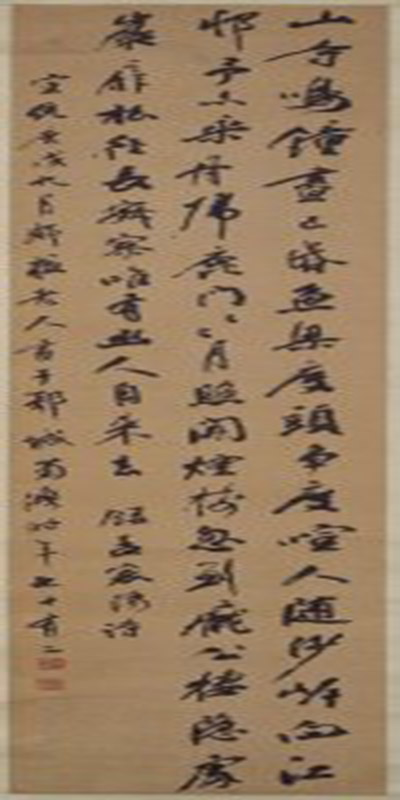 山寺鳴鐘晝已昏漁梁度頭爭度喧人隨沙岸向江
邨予亦乘舟歸鹿門〻月照開煙樹忽到龐公棲隱處
巖扉松徑長寂寥唯有幽人自来去 錄孟襄陽詩
宣統庚戌九月老人書于郡城時年七十有二